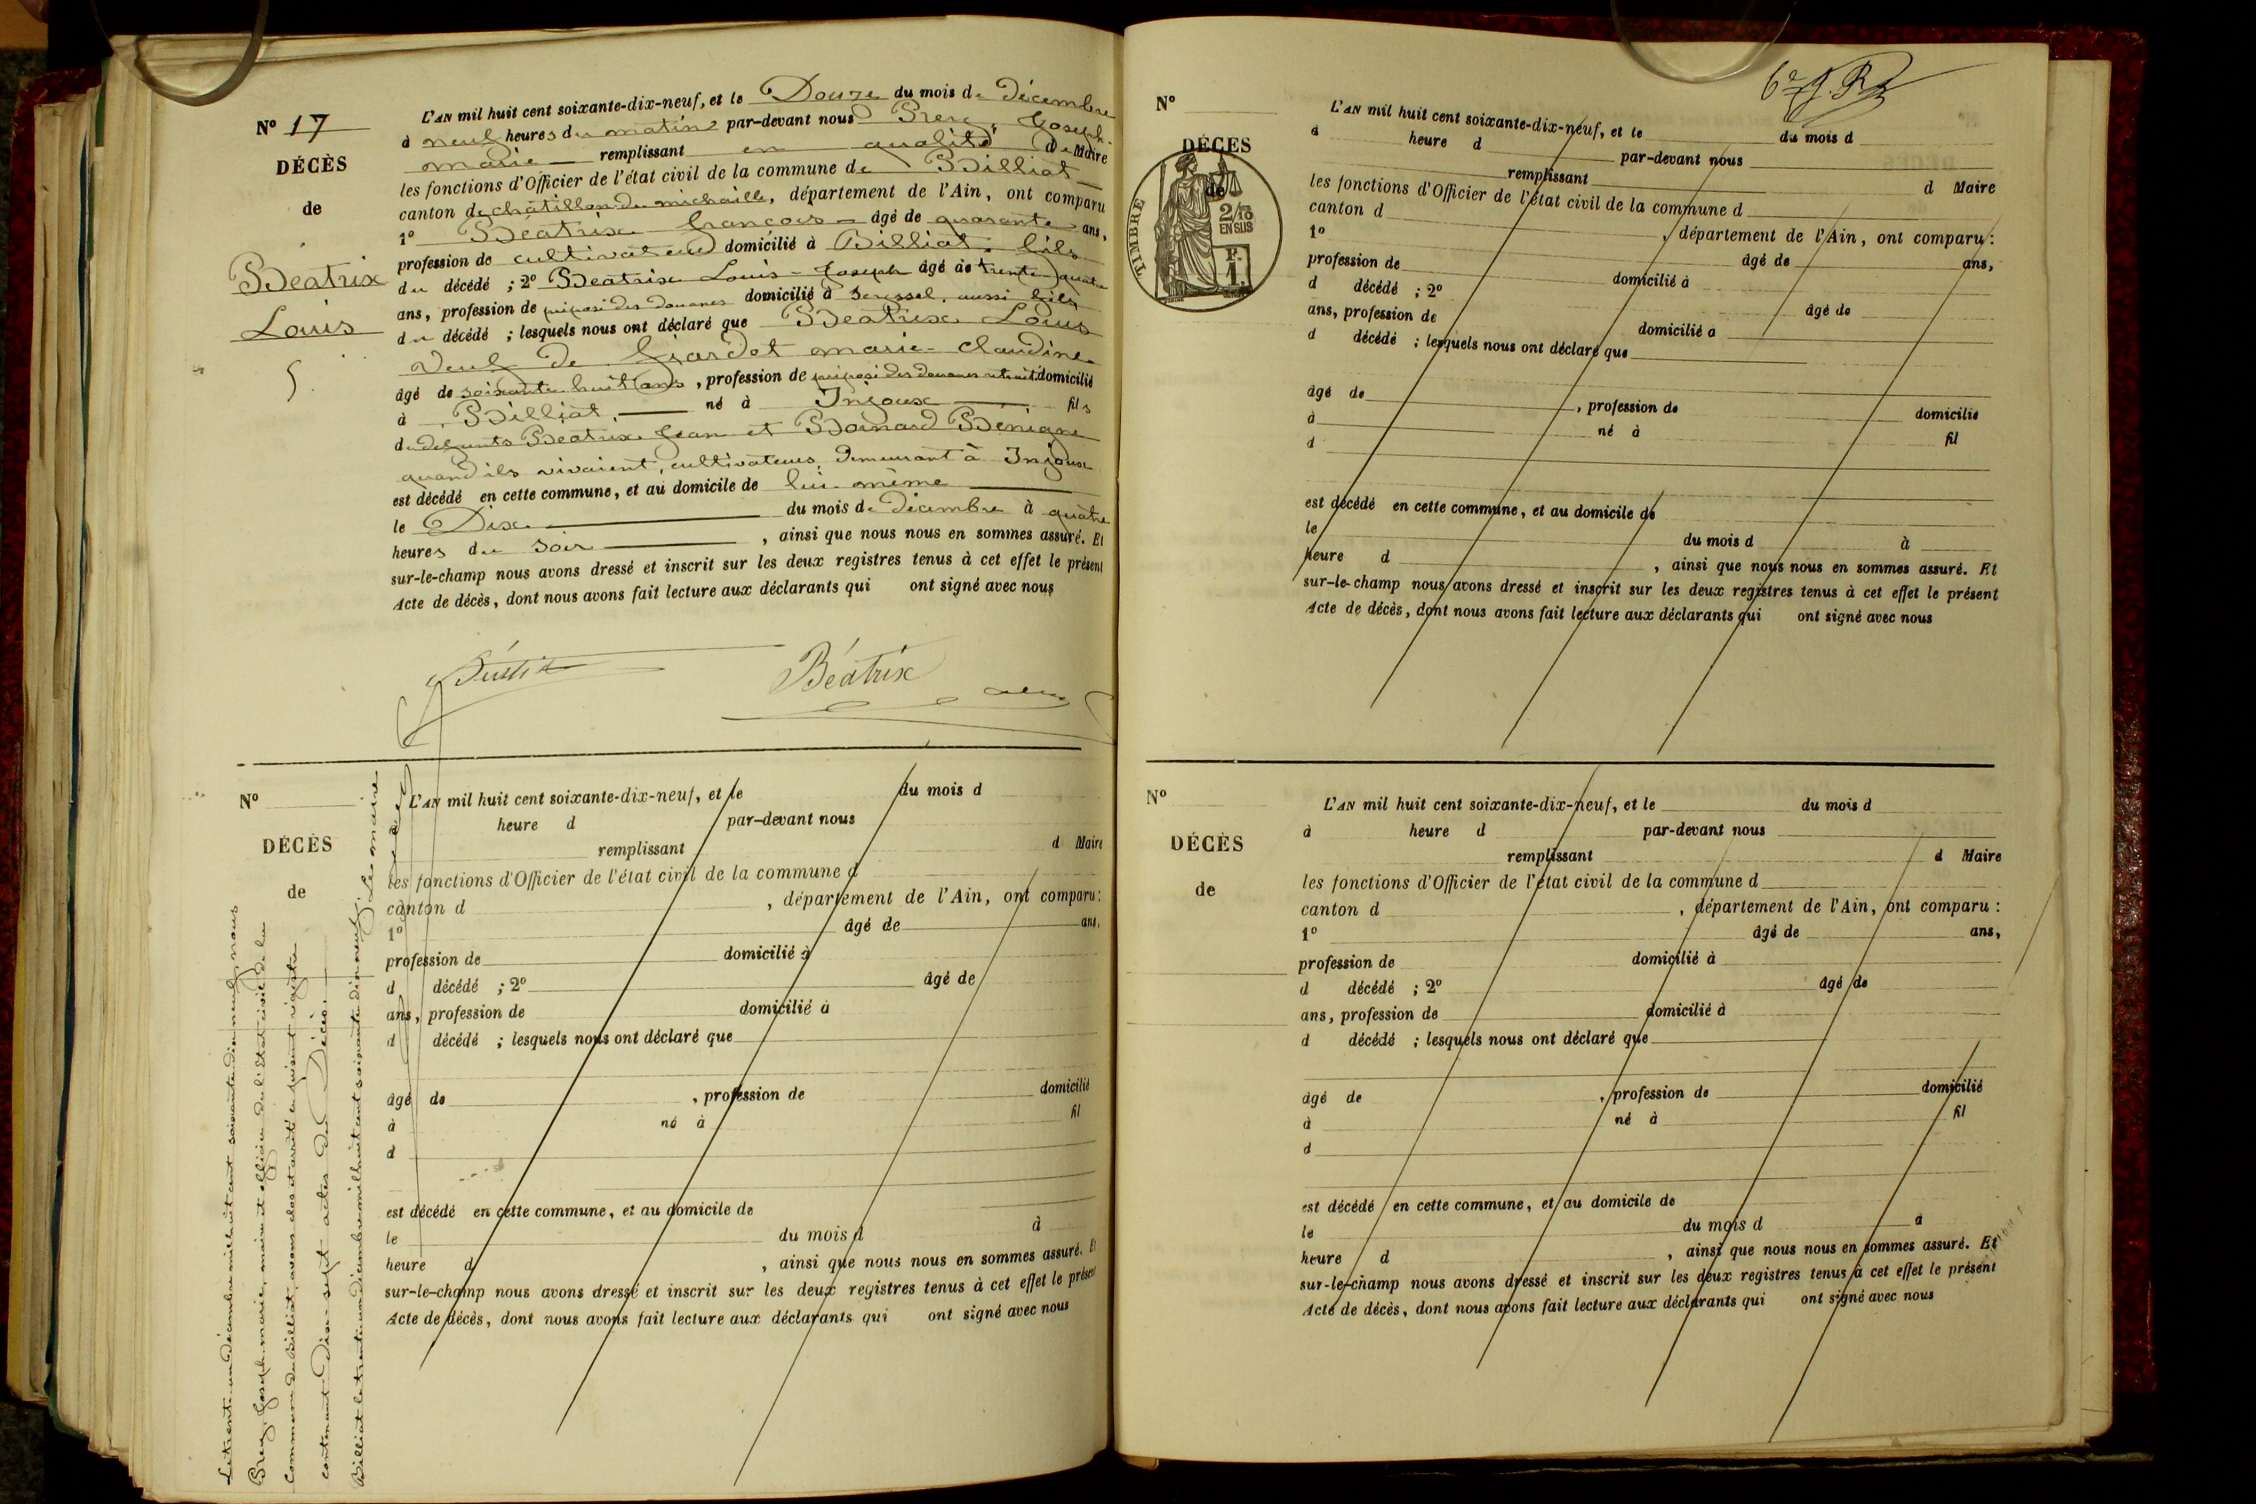 N° 17
DÉCÈS
de
Béatrix
Louis
L'AN mil huit cent soixante-dix-neuf, et le Douze du mois de décembre
à neuf heures du matin par-devant nous Prere, Joseph-
marie remplissant en qualité de Maire
les fonctions d'Officier de l'état civil de la commune de Billiat
canton de châtillon de michaille, département de l'Ain, ont comparu
1° Béatrix françois âgé de quarante ans,
profession de cultivateur domicilié à Billiat, fils
du décédé ; 2° Béatrix Louis-Joseph âgé de trente quatre
ans, profession de préposé des douanes domicilié à Seyssel, aussi fils
du décédé ; lesquels nous ont déclaré que Béatrix Louis
veuf de Girardet marie-claudine
âgé de soixante huit ans, profession de préposé des douanes retraité domicilié
à Billiat, né à Injoux fils
de défunts Béatrix Jean et Boinard Bénigne
quand ils vivaient, cultivateurs, demeurant à Injoux
est décédé en cette commune, et au domicile de lui-même
le Dix du mois de décembre à quatre
heures du soir, ainsi que nous nous en sommes assuré. Et
sur-le-champ nous avons dressé et inscrit sur les deux registres tenus à cet effet le présent
Acte de décès, dont nous avons fait lecture aux déclarants qui ont signé avec nous
Béatrix
Le trente un décembre mil huit cent soixante dix neuf, nous
Joseph marie, maire et officier de l'état civil de la
Commune de Billiat, avons clos et arrêté le présent registre
contenant Dix-sept actes de Décès.
Billiat le trente un décembre mil huit cent soixante dix neuf. Le maire
N°
DÉCÈS
de
L'AN mil huit cent soixante-dix-neuf, et le du mois d
heure d par-devant nous
remplissant d Maire
les fonctions d'Officier de l'état civil de la commune d
canton d , département de l'Ain, ont comparu :
1° âgé de ans,
profession de domicilié à
d décédé ; 2° âgé de
ans, profession de domicilié à
d décédé ; lesquels nous ont déclaré que
âgé de , profession de domicilié
à né à fil
d
est décédé en cette commune, et au domicile de
le du mois d à
heure d , ainsi que nous nous en sommes assuré. Et
sur-le-champ nous avons dressé et inscrit sur les deux registres tenus à cet effet le présent
Acte de décès, dont nous avons fait lecture aux déclarants qui ont signé avec nous
N°
DÉCÈS
de
TIMBRE
2/10
EN SUS
F.
1.
L'AN mil huit cent soixante-dix-neuf, et le du mois d
à heure d par-devant nous
remplissant d Maire
les fonctions d'Officier de l'état civil de la commune d
canton d , département de l'Ain, ont comparu :
1° âgé de ans,
profession de domicilié à
d décédé ; 2° âgé de
ans, profession de domicilié à
d décédé ; lesquels nous ont déclaré que
âgé de , profession de domicilié
à né à fil
d
est décédé en cette commune, et au domicile de
le du mois d à
heure d , ainsi que nous nous en sommes assuré. Et
sur-le-champ nous avons dressé et inscrit sur les deux registres tenus à cet effet le présent
Acte de décès, dont nous avons fait lecture aux déclarants qui ont signé avec nous
N°
DÉCÈS
de
L'AN mil huit cent soixante-dix-neuf, et le du mois d
à heure d par-devant nous
remplissant d Maire
les fonctions d'Officier de l'état civil de la commune d
canton d , département de l'Ain, ont comparu :
1° âgé de ans,
profession de domicilié à
d décédé ; 2° âgé de
ans, profession de domicilié à
d décédé ; lesquels nous ont déclaré que
âgé de , profession de domicilié
à né à fil
d
est décédé en cette commune, et au domicile de
le du mois d à
heure d , ainsi que nous nous en sommes assuré. Et
sur-le-champ nous avons dressé et inscrit sur les deux registres tenus à cet effet le présent
Acte de décès, dont nous avons fait lecture aux déclarants qui ont signé avec nous